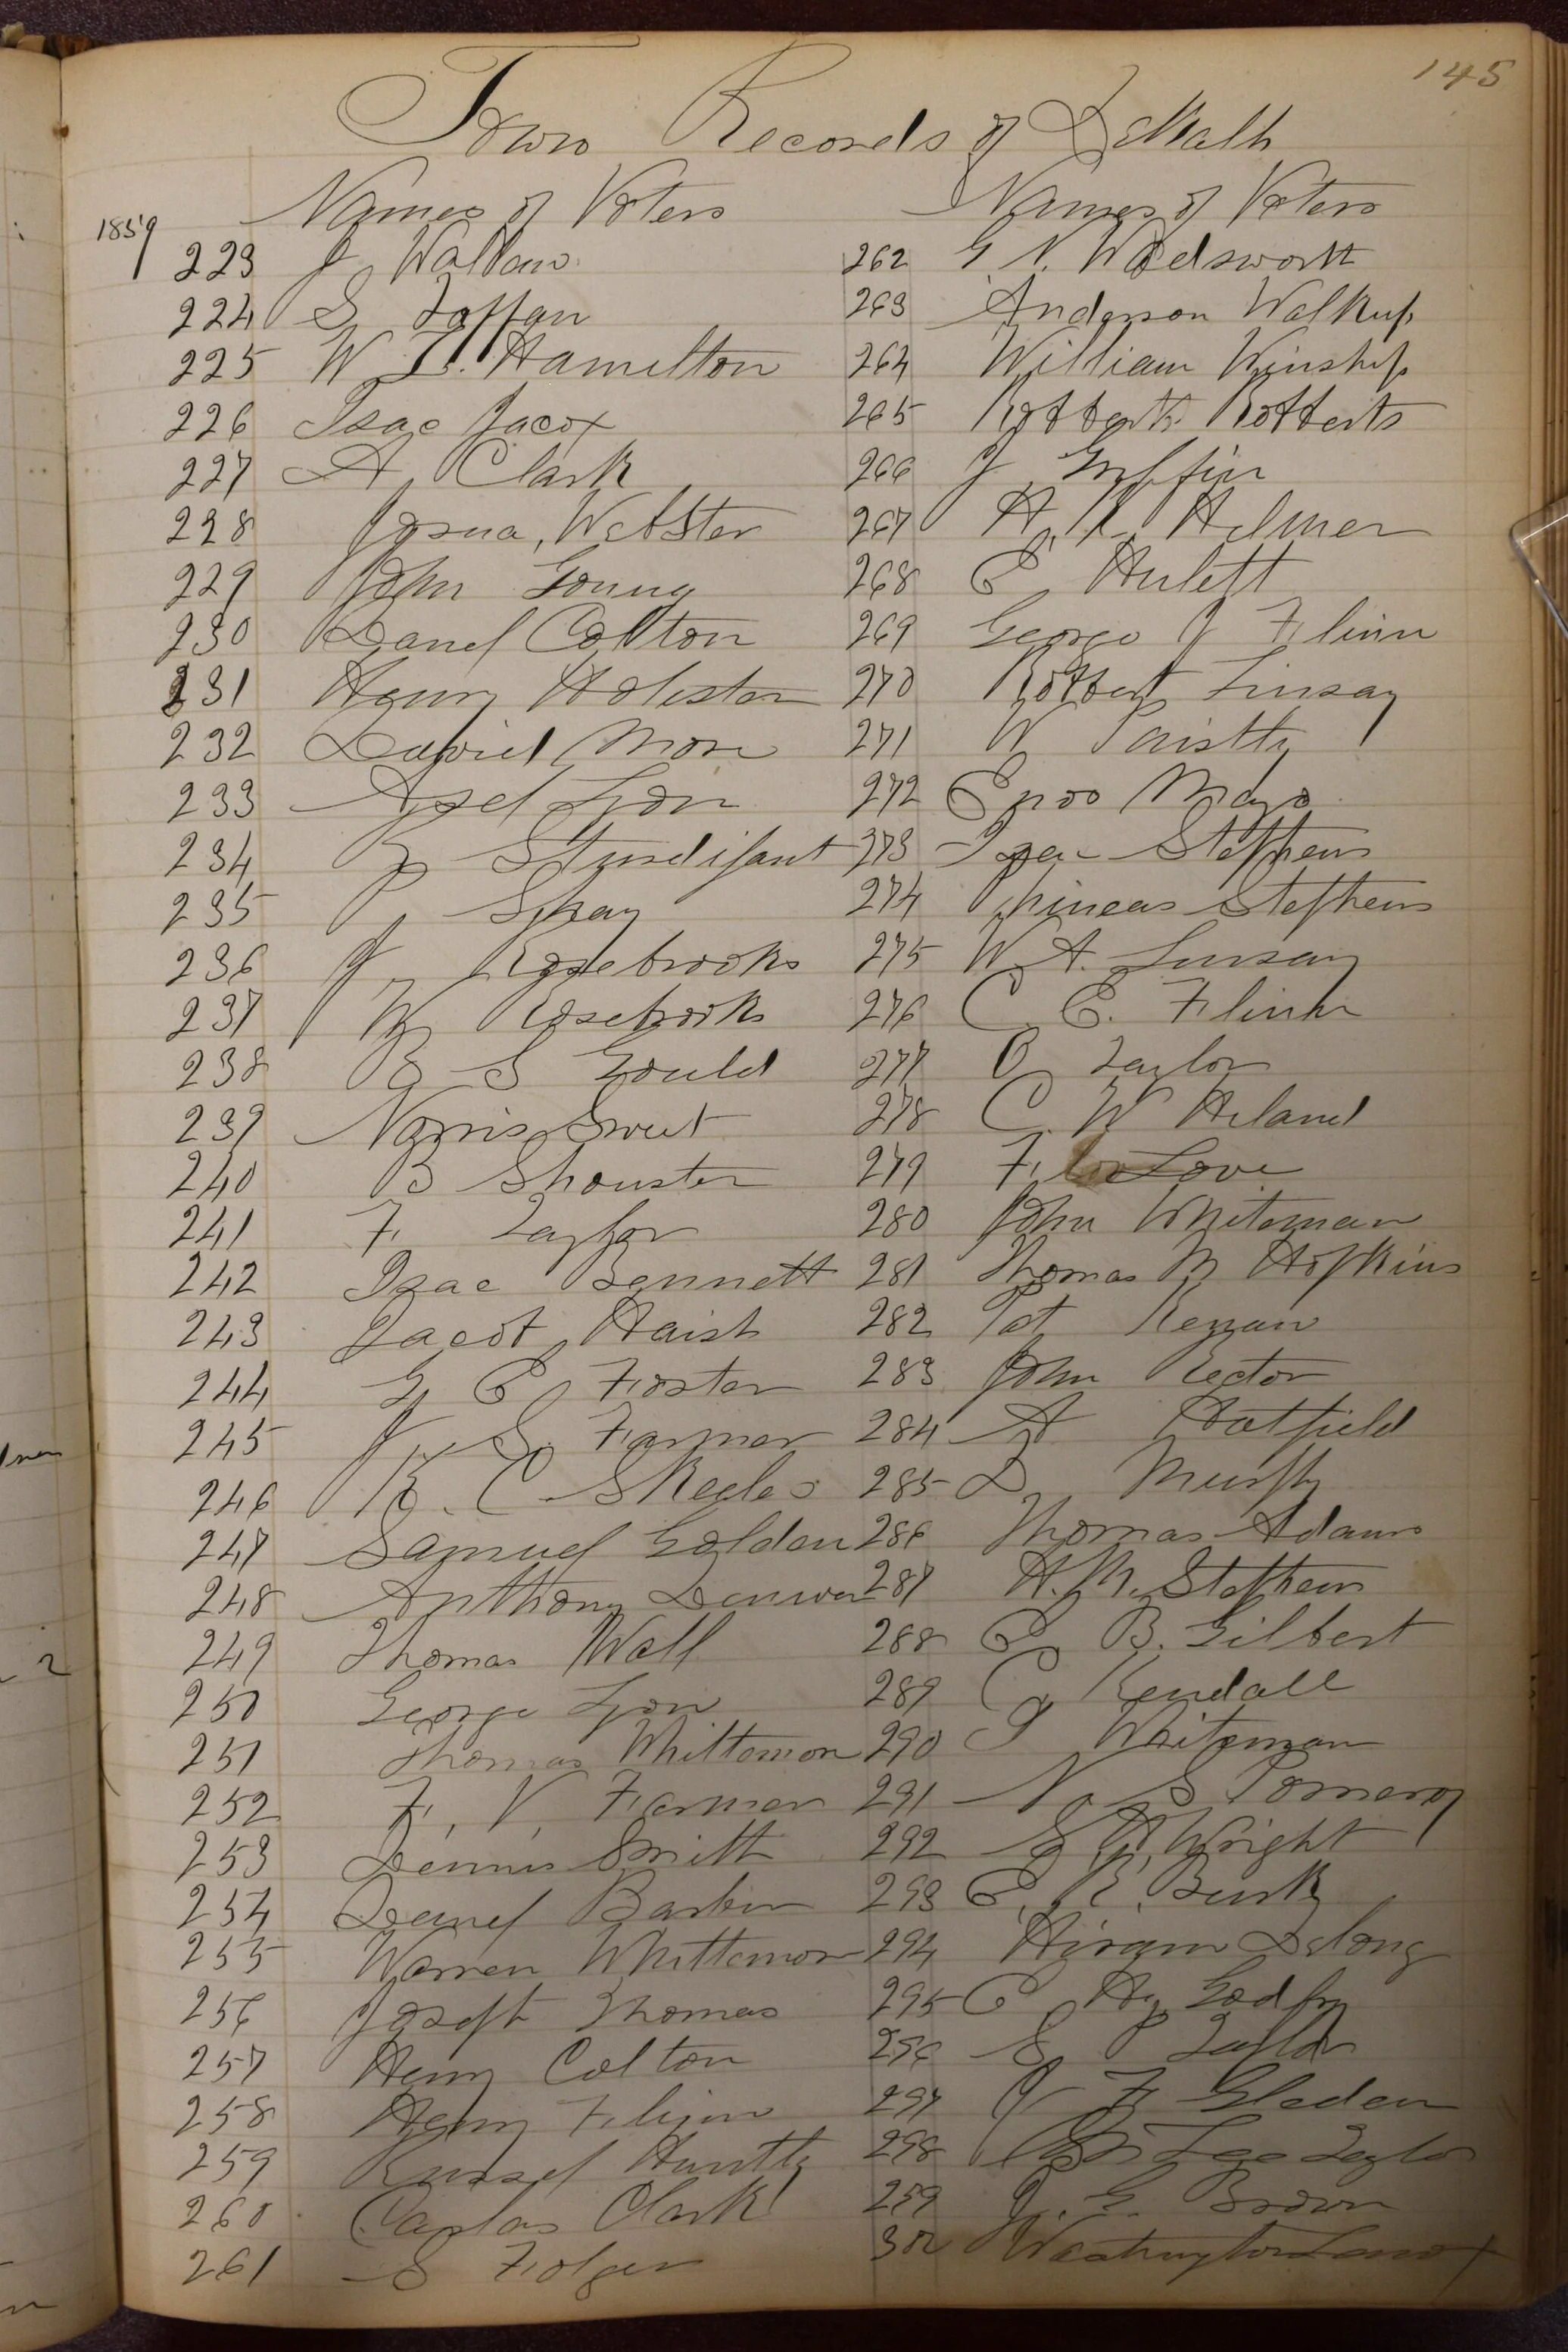 145
Town Records of DeKalb
Names of Voters
Names of Voters
1859
223 J Wallaw
224 S Tappan
225 W T. Hamelton
226 Isac Jacox
227 A Clark
228 Josua, Webster
229 John Young
230 Danel Colton
231 Henry Holister
232 Daniel More
233 Asel Lyon
234 Z Sturdifant
235 P Spray
236 J Rosebrooks
237 W Rosebrooks
238 B S Gould
239 Norris Sweet
240 B Shouster
241 F. Taylor
242 Isac Bennett
243 Jacob Haish
244 G E Foster
245 J S. Farmer
246 K. C. Skeeles
247 Samuel Golden
248 Anthony Denver
249 Thomas Wall
250 George Lyon
251 Thomas Whittemore
252 F. V. Farmer
253 Dennis Smith
254 Danel Barber
255 Warren Whittemore
256 Joseph Thomas
257 Henry Colton
258 Henry Flinn
259 Russel Huntly
260 Carlos Clark
261 S Folger
262 G. N. Wodsworth
263 Anderson Walkup
264 William Winship
265 Robberth Robberts
266 J Griffin
267 H. K. Helmer
268 E Hulett
269 George J Flinn
270 Robbert Linsay
271 W
272 Enoo Mayo
273 Isac Stephens
274 Phineas Stephens
275 W. A. Linsay
276 C. E. Flinn
277 O Taylor
278 C. W Hiland
279 F. Love
280 John Whiteman
281 Thomas M Hopkins
282 Pat Keggan
283 John Rector
284 A Hatfield
285 D Murphy
286 Thomas Adams
287 H. M. Stephens
288 E B. Gilbert
289 C Kendall
290 I Whiteman
291 N S Pomeroy
292 S A. Wright
293 E. R. Burk
294 Hiram Delong
295 C H. Godfry
296 S P Taylor
297 J F Gleden
298 Taylor
259 J. G. Brown
300 Washington